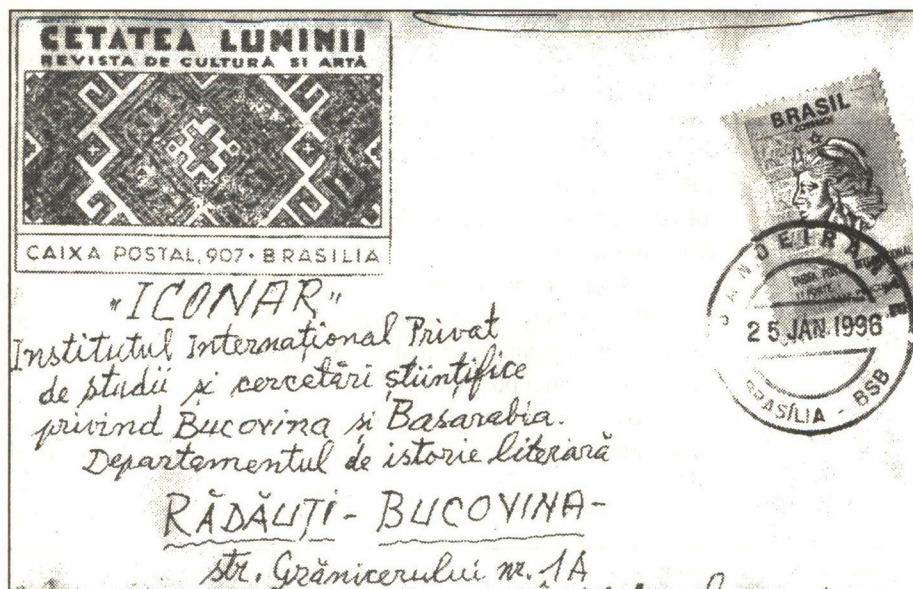 CETATEA LUMINII
REVISTA DE CULTURĂ SI ARTĂ
CAIXA POSTAL, 907 • BRASILIA
BRASIL
25 JAN 1996
BRASÍLIA - BSB
"ICONAR"
Institutul Internațional Privat
de studii și cercetări științifice
privind Bucovina și Basarabia.
Departamentul de istorie literară
RĂDĂUȚI - BUCOVINA -
str. Grănicerului nr. 1A